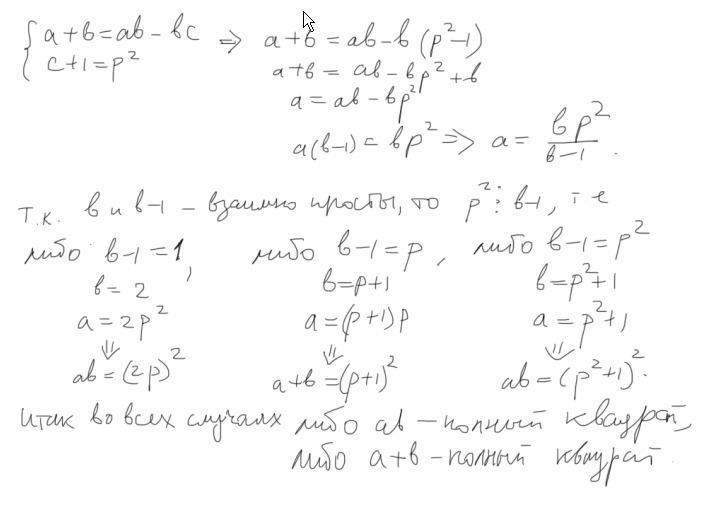 { a+b=ab-bc ⇒ a+b=ab-b(p²-1)
c+1=p²
a+b=ab-bp²+b
a=ab-bp²
a(b-1)=bp² ⇒ a= bp²/b-1.
Т.к. b и b-1 - взаимно просты, то p²⋮b-1, т е
либо b-1=1, либо b-1=p, либо b-1=p²
b=2 b=p+1 b=p²+1
a=2p² a=(p+1)p a=p²+1
⇓ ⇓ ⇓
ab=(2p)² a+b=(p+1)² ab=(p²+1)².
итак во всех случаях либо ab - полный квадрат,
либо a+b - полный квадрат.